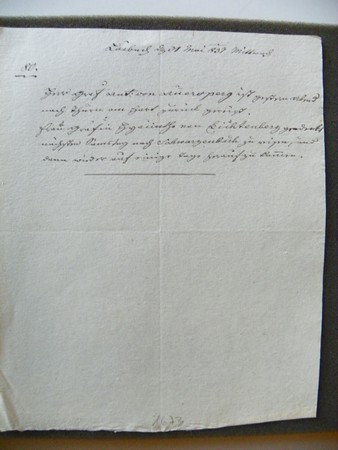 Laibach den Mai Mittwoch
80.
Herr Graf Ant. von Auersperg ist gestern Abend
nach Thurn am Hart zurück gereist.
Frau Gräfin Hyacinthe von Lichtenberg gedenkt
nächsten Samstag nach Schwarzenbach zu reisen, und
dann wieder auf einige Tage herauf zu kommen.
1673